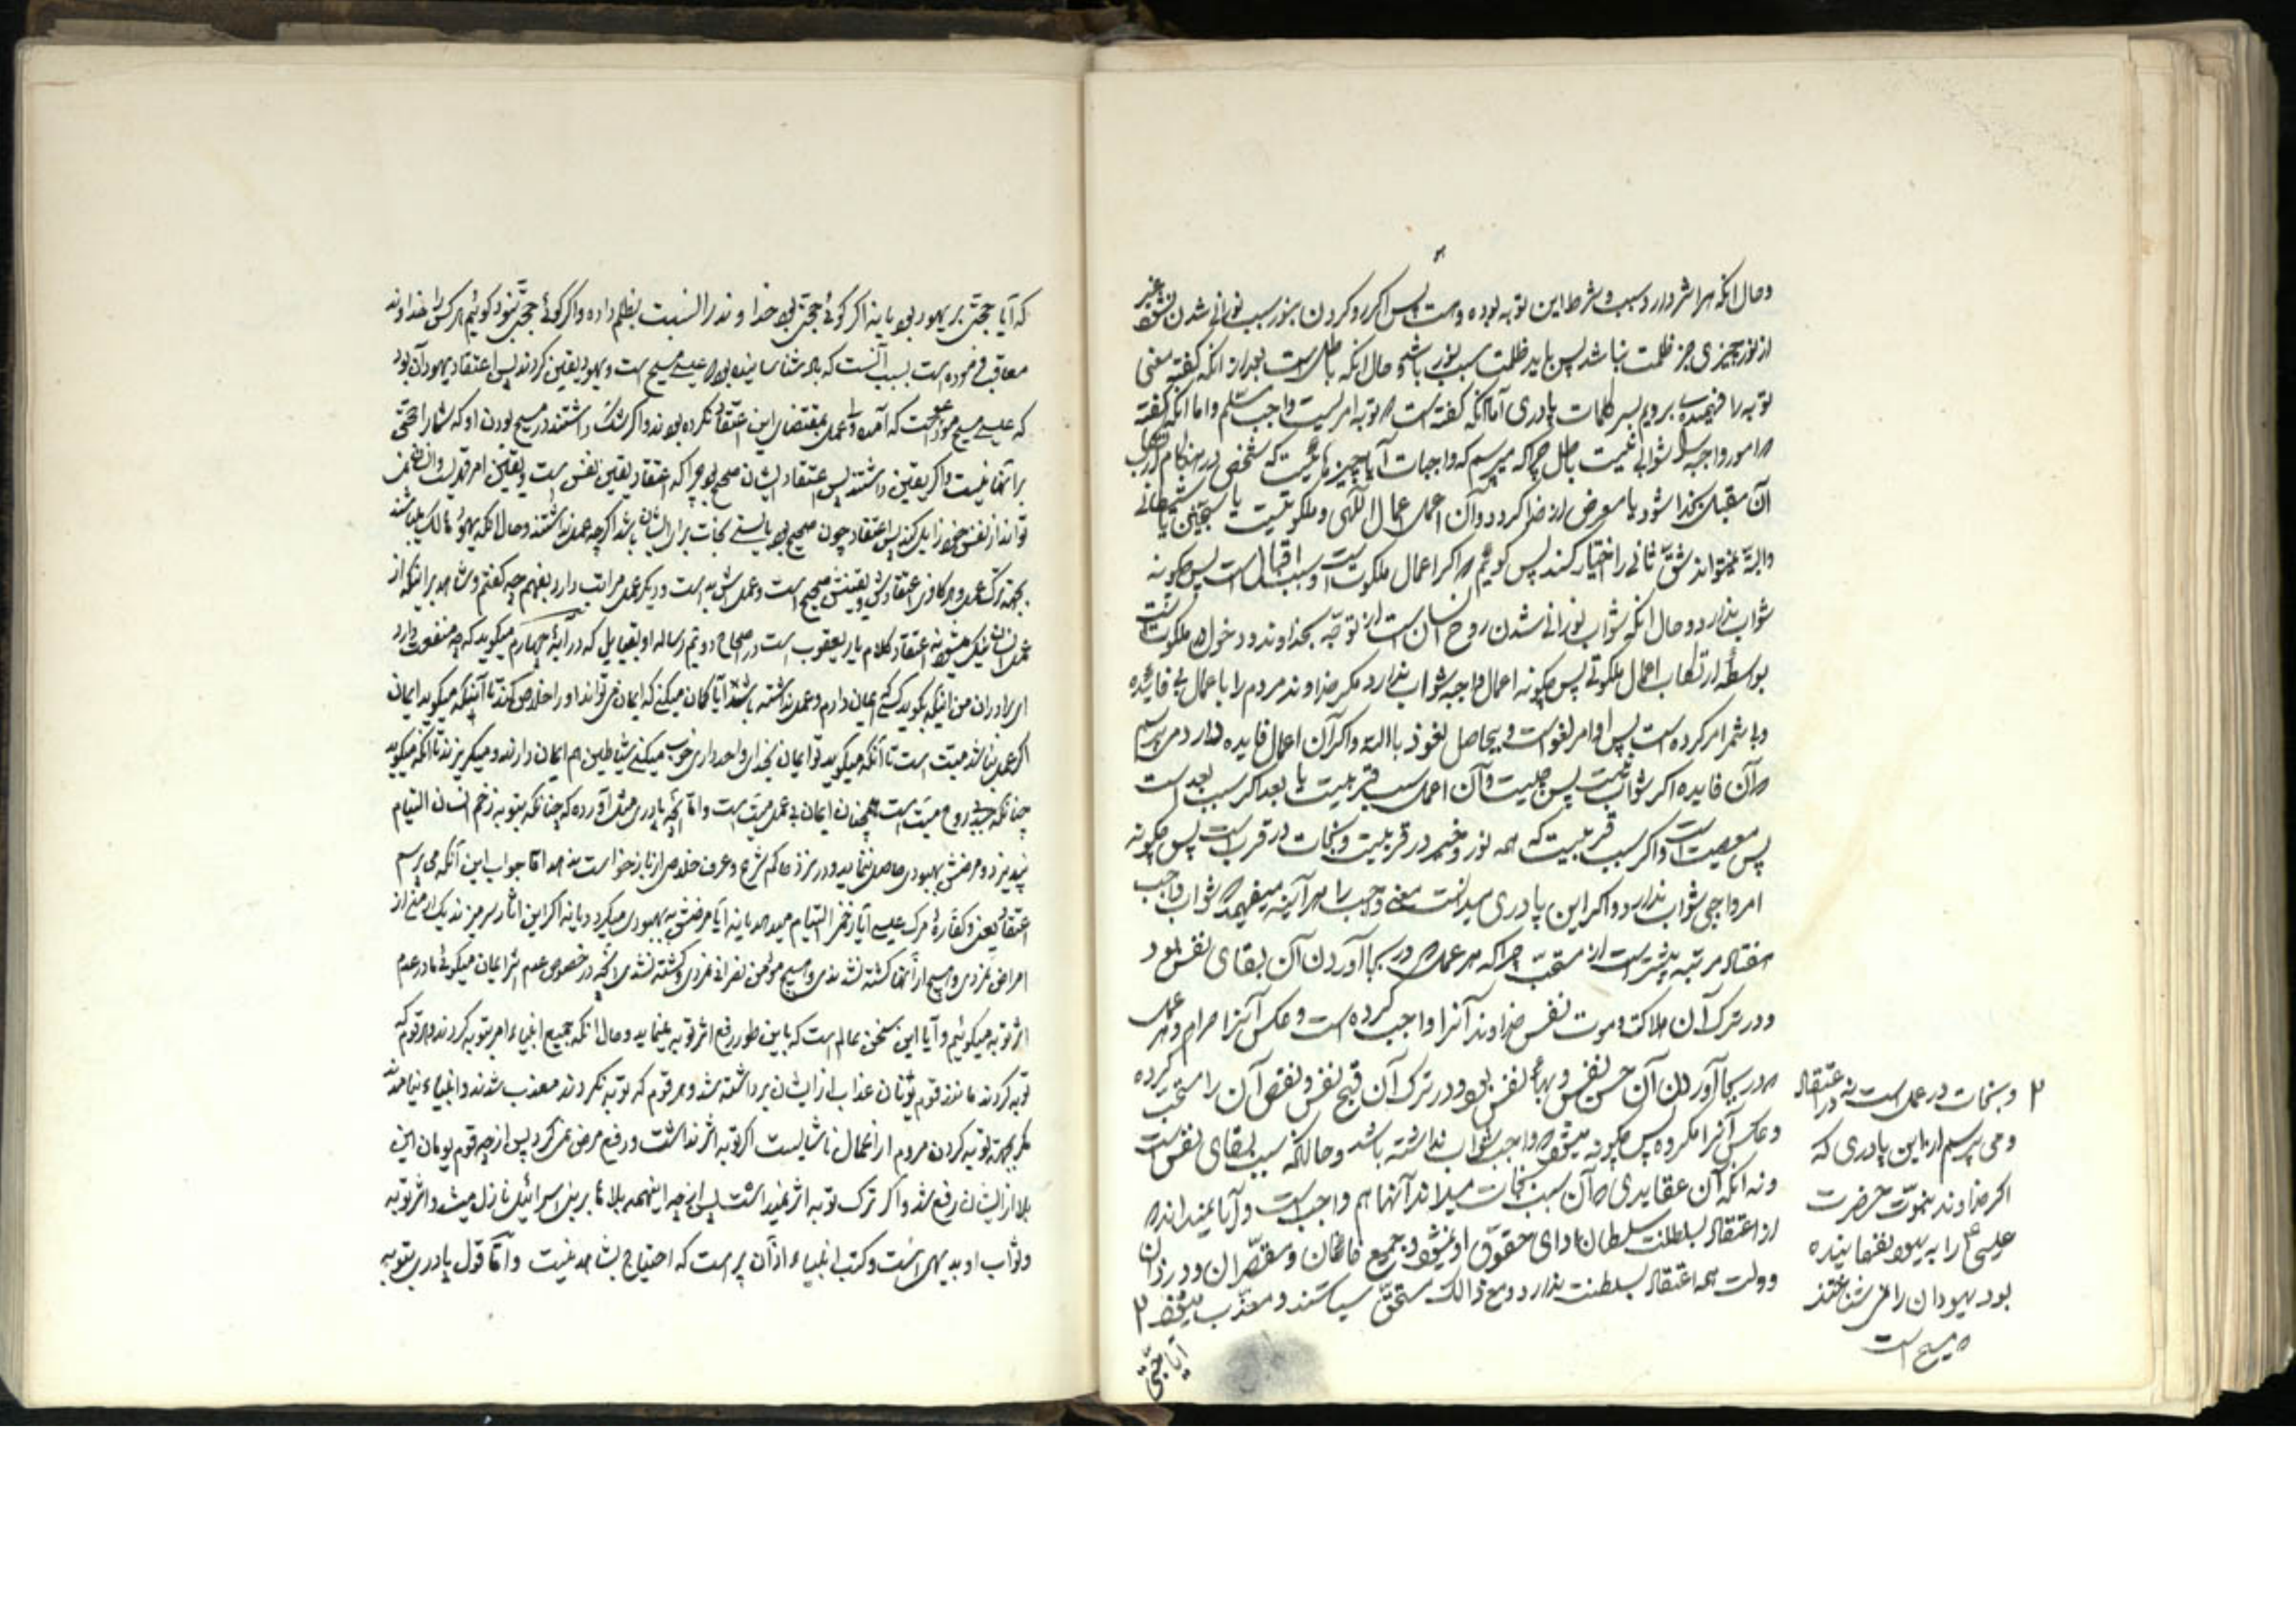 و حال انکه هر اشر دارد و سبب و شرط این توبه بوده و هست پس اکر رو کردن بنور سبب نورانی شدن نشود غیر
از نور چیزی جز ظلمت نباشد پس باید ظلمت سبب نور باشد و حال انکه باطل است بعد از انکه کفته معنی
توبه را فهمیدی برویم بسر کلمات پادری اما انکه کفته است که توبه امریست واجب مسلم و اما انکه کفته
که امور واجبه را ثوابی نیست باطل چرا که میپرسم که واجبات آیا چیزهائیست که شخص در هنکام ارتکاب
آن مقبل بخدا شود یا معرض از خدا کردد و آن اعمال اعمال اللهی و ملکوتیست یا سجینی یا شیطانی
و البته نمیتواند شق ثانی را اختیار کند پس کوئیم که اکر اعمال ملکوتیست و سبب اقبال است پس چکونه
ثواب ندارد و حال انکه ثواب نورانی شدن روح انسان است از توجه بخداوند و دخول در ملکوت است
بواسطه ارتکاب اعمال ملکوتی پس چکونه اعمال واجبه ثواب ندارد مکر خداوند مردم را باعمال بی فایده
و بی ثمر امر کرده است پس اوامر لغو است و بیحاصل نعوذ باالله و اکر آن اعمال فایده دارد می پرسم
که آن فایده اکر ثواب نیست پس چیست و آن اعمال سبب قربیت یا بعد اکر سبب بعد است
پس معصیت است و اکر سبب قربیت که همه نور و خیر در قربیت و نجات در قرب است پس چکونه
امر واجبی ثواب ندارد و اکر این پادری میدانست معنی واجب را هر آینه میفهمید که ثواب واجب
هفتاد مرتبه بیشتر است از مستحب چرا که هر عملی که در بجا آوردن آن بقای نفس بود
و در ترک آن هلاکت و موت نفس خداوند آنرا واجب کرده است و عکس آنرا حرام و هر عملی
که در بجا آوردن آن حسن نفس و بهاء نفس بود و در ترک آن قبح نفس و نقص آن را مستحب کرده
و عکس آنرا مکروه پس چکونه میشود که واجب ثواب نداشته باشد و حال انکه سبب بقای نفس است
و نه انکه آن عقایدی که آن سبب نجات میداند آنها هم واجب است و آیا نمیداند که
از اعتقاد بسلطنت سلطان ادای حقوق او نمیشود و جمیع خائنان و مقصران و دزدان
دولت همه اعتقاد بسلطنت دارند و مع ذالک مستحق سیاستند و معذب میشوند ۲
۲ و نجات در عمل است نه در اعتقاد
و می پرسم از این پادری که
اکر خداوند نبوت حضرت
عیسی را به یهود نفهمانیده
بود یهودان را می شناختند
که مسیح است
آیا حجتی
که آیا حجتی بر یهود بود یا نه اکر کوئی حجتی بود خداوند را نسبت بظلم داده و اکر کوئی حجتی نبود کوئیم هر کس را خداوند
معاقب فرموده است بسبب آنست که باو شناسانیده بود که عیسی مسیح است و یهود یقین کردند پس اعتقاد یهود آن بود
که عیسی مسیح موعود است که آمده و عمل بمقتضای این اعتقاد نکرده بودند و اکر شک داشتند در مسیح بودن او که شما را حجتی
بر آنها نیست و اکر یقین داشتند پس اعتقاد ایشان صحیح بود چرا که اعتقاد یقین نفس است و یقین امر قهریست و انسان نمی
تواند از نفس خود زایل کند پس اعتقاد چون صحیح بود بایستی نجات برای ایشان باشد اکرچه عمل نداشتند و حال انکه یهود هالک میباشند
بجهة ترک عمل و هر کافری اعتقادش و یقینش صحیح است و عملش بد است و دیکر عمل مراتب دارد بفهم چه کفتم و شاهد بر اینکه از
عمل انسان نیک میشود نه اعتقاد کلام یار یعقوب است در اصحاح دویم رساله او بقبایل که در آیه چهارم میکوید که چه منفعت دارد
ای برادران من اینکه بکوید کسی ایمان دارم و عمل نداشته باشد آیا کمان میکنی که ایمان می تواند او را خلاص کند تا آینکه میکوید ایمان
اکر عمل نباشد میت است تا آنکه میکوید تو ایمان بخدای واحد داری خوب میکنی شیاطین هم ایمان دارند و میکریزند تا انکه میکوید
چنانکه جسد بی روح میت است همچنان ایمان بی عمل میت است و اما آنچه پادری مثل آورده که چنانکه بتوبه زخم انسان التیام
نپذیرد و مرضش بهبودی حاصل ننماید و در نزد حاکم شرع و عرف خلاصی از باز خواست ندهد اما جواب این آنکه می پرسم
اعتقاد بعفو و کفاره مرک عیسی آیا زخم را التیام میدهد یا نه آیا مرضش به بهبودی میکردد یا نه اکر این اثار سر میزند یک از شما از
امراض نمردی و هیچ از آنها کشته نشدندی و هیچ مؤمن نصرانی نمردی و کشته نشدی انچه در خصوص عدم اثر ایمان میکوئی ما در عدم
اثر توبه میکوئیم و آیا این سخن عالم است که باین طور رفع اثر توبه مینماید و حال انکه جمیع انبیاء امر بتوبه کردند و هر قوم که
توبه کردند مانند قوم یونان عذاب از ایشان برداشته شد و هر قوم که توبه نکردند معذب شدند و انبیاء نیامدند
مکر بجهة توبه کردن مردم از اعمال ناشایست اکر توبه اثر نداشت و رفع مرض نمی کرد پس از چه قوم یونان این
بلا از ایشان رفع شد و اکر ترک توبه اثر نمیداشت پس از چه اینهمه بلاها بر بنی اسرائیل نازل میشد و اثر توبه
و ثواب او بدیهی است و کتب انبیاء از آن پر است که احتیاج بشاهد نیست و اما قول پادری بتوبه